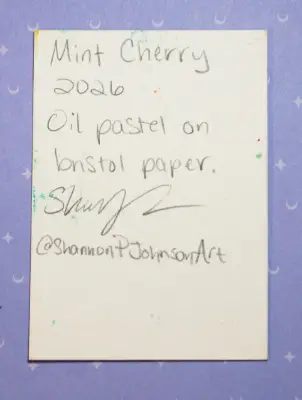 Mint Cherry
2026
Oil pastel on
bristol paper.
@ShannonPJohnsonArt